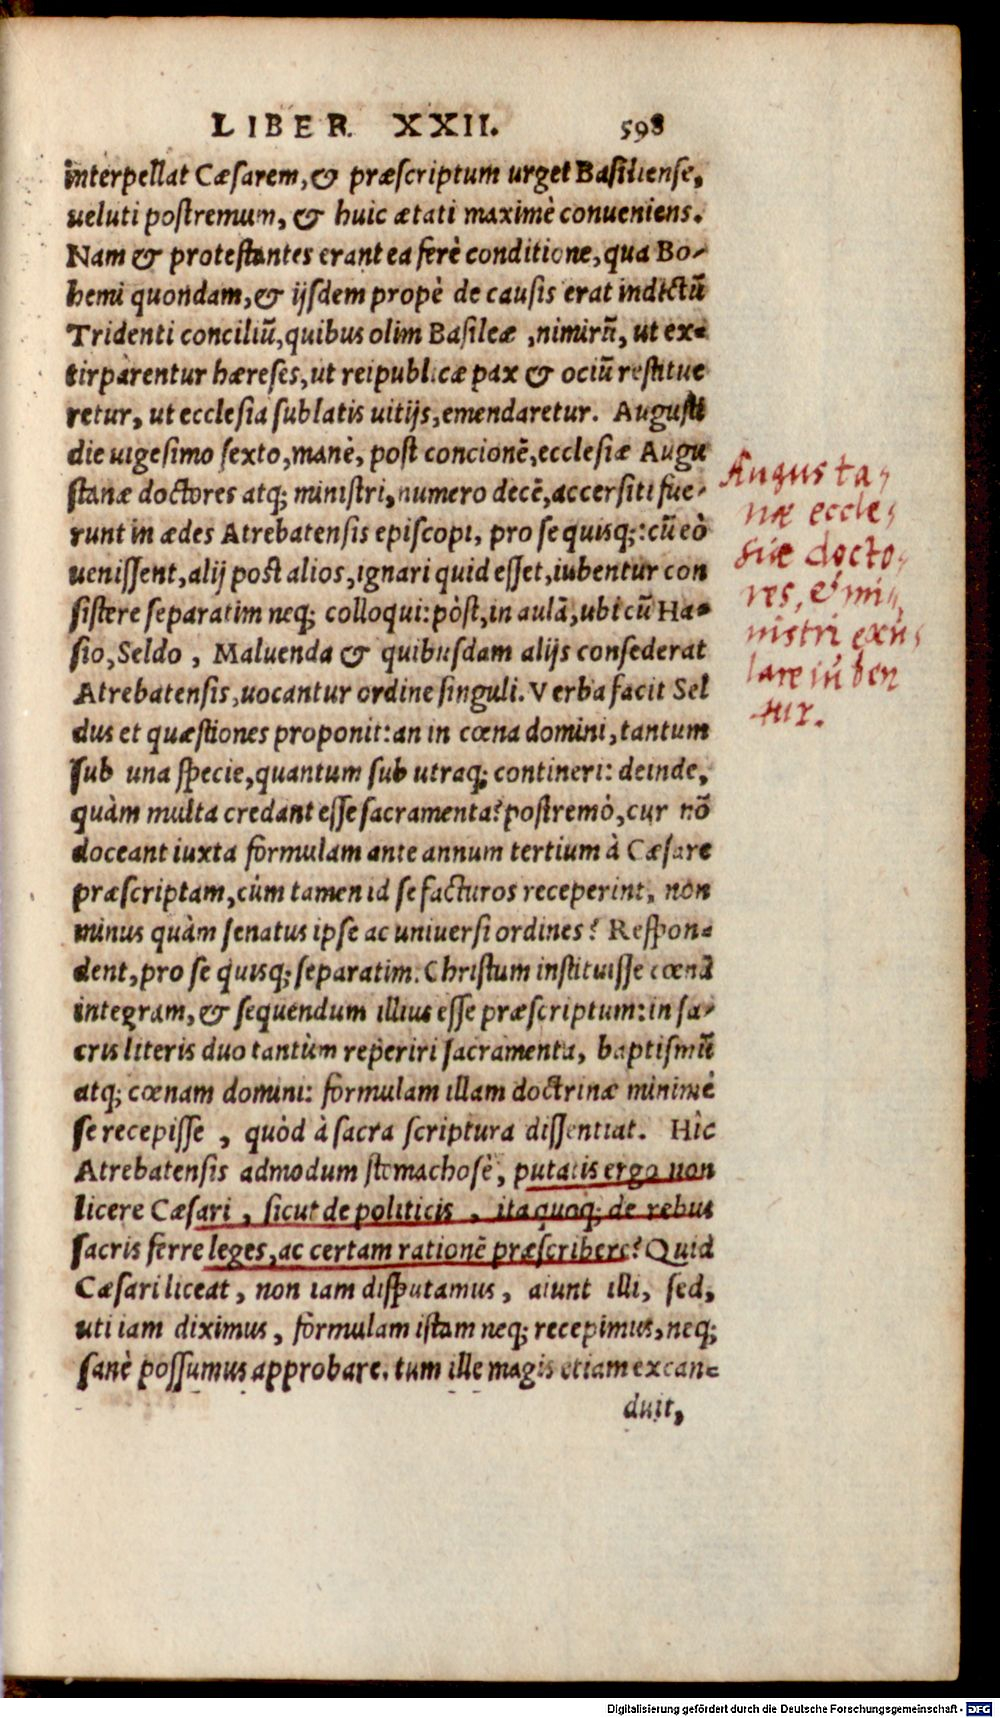 LIBER XXII. 598
interpellat Cæsarem, & præscriptum urget Basiliense,
ueluti postremum, & huic ætati maximè conueniens.
Nam & protestantes erant ea ferè conditione, qua Bo-
hemi quondam, & ijsdem propè de causis erat indictũ
Tridenti conciliũ, quibus olim Basileæ, nimirũ, ut ex-
tirparentur hæreses, ut reipublicæ pax & ociũ restitue
retur, ut ecclesia sublatis uitijs, emendaretur. Augusti
die uigesimo sexto, manè, post concionẽ, ecclesiæ Augu
stanæ doctores atq; ministri, numero decẽ, accersiti fue-
runt in ædes Atrebatensis episcopi, pro se quisq;: cũ eò
uenissent, alij post alios, ignari quid esset, iubentur con
sistere separatim neq; colloqui: pòst, in aulã, ubi cũ Ha-
sio, Seldo, Maluenda & quibusdam alijs consederat
Atrebatensis, uocantur ordine singuli. Verba facit Sel
dus et quæstiones proponit: an in cœna domini, tantum
sub una specie, quantum sub utraq; contineri: deinde,
quàm multa credant esse sacramenta? postremò, cur nõ
doceant iuxta formulam ante annum tertium à Cæsare
præscriptam, cùm tamen id se facturos receperint, non
minus quàm senatus ipse ac uniuersi ordines? Respon-
dent, pro se quisq; separatim. Christum instituisse cœnã
integram, & sequendum illius esse præscriptum: in sa-
cris literis duo tantùm reperiri sacramenta, baptismũ
atq; cœnam domini: formulam illam doctrinæ minimè
se recepisse, quòd à sacra scriptura dissentiat. Hîc
Atrebatensis admodum stomachosè, putatis ergo non
licere Cæsari, sicut de politicis, ita quoq; de rebus
sacris ferre leges, ac certam rationẽ præscribere? Quid
Cæsari liceat, non iam disputamus, aiunt illi, sed,
uti iam diximus, formulam istam neq; recepimus, neq;
sanè possumus approbare. tum ille magis etiam excan-
duit,
Augusta-
næ eccle-
siæ docto-
res, & mi-
nistri exu-
lare iuben
tur.
Digitalisierung gefördert durch die Deutsche Forschungsgemeinschaft - DFG